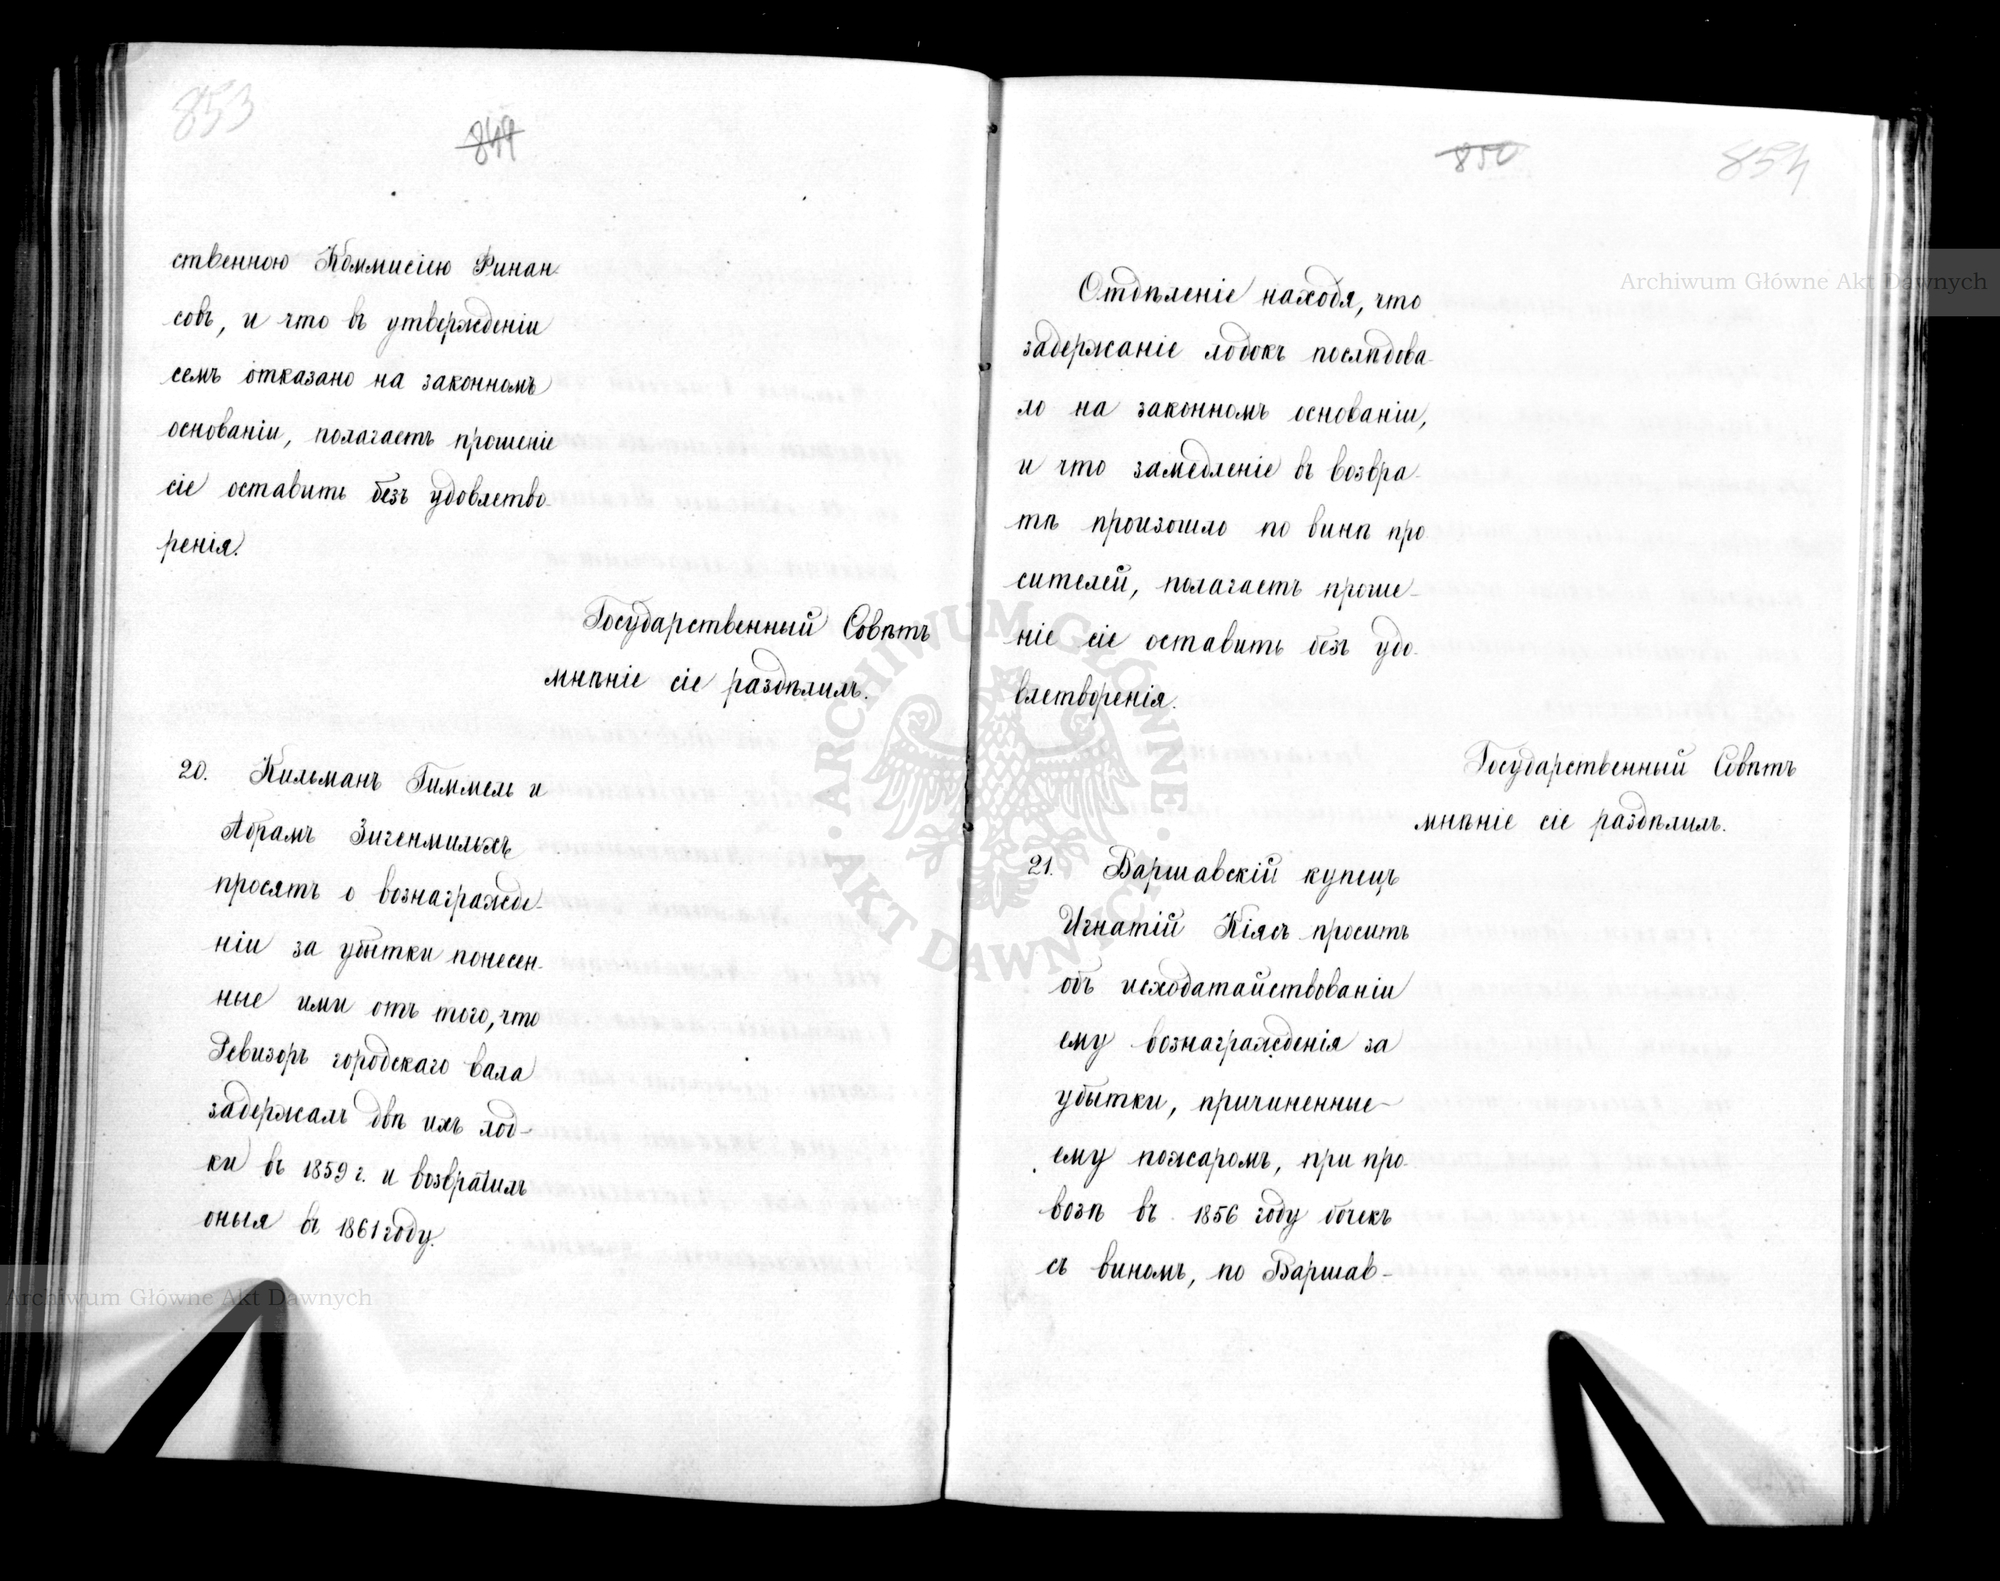 853
849
ственною Коммисіею Финан-
совъ, и что въ утвержденіи
семъ отказано на законномъ
основаніи, полагаетъ прошеніе
сіе оставить безъ удовлетво-
ренія.
Государственный Совѣтъ
мнѣніе сіе раздѣлилъ.
20. Кильманъ Гиммель и
Абрамъ Зигенмильхъ
просятъ о вознагражде-
ніи за убытки понесен-
ные ими отъ того, что
Ревизоръ городскаго вала
задержалъ двѣ ихъ лод-
ки въ 1859 г. и возвратилъ
оныя въ 1861 году.
850
854
Отдѣленіе находя, что
задержаніе лодокъ послѣдова-
ло на законномъ основаніи,
и что замедленіе въ возвра-
тѣ произошло по винѣ про
сителей, полагаетъ проше-
ніе сіе оставить безъ удо-
влетворенія.
Государственный Совѣтъ
мнѣніе сіе раздѣлилъ.
21. Варшавскій купецъ
Игнатій Кіясъ проситъ
объ исходатайствованіи
ему вознагражденія за
убытки, причиненные
ему пожаромъ, при про-
возѣ въ 1856 году бочекъ
съ виномъ, по Варшав-
Archiwum Główne Akt Dawnych
Archiwum Główne Akt Dawnych
ARCHIWUM GŁÓWNE
AKT DAWNYCH